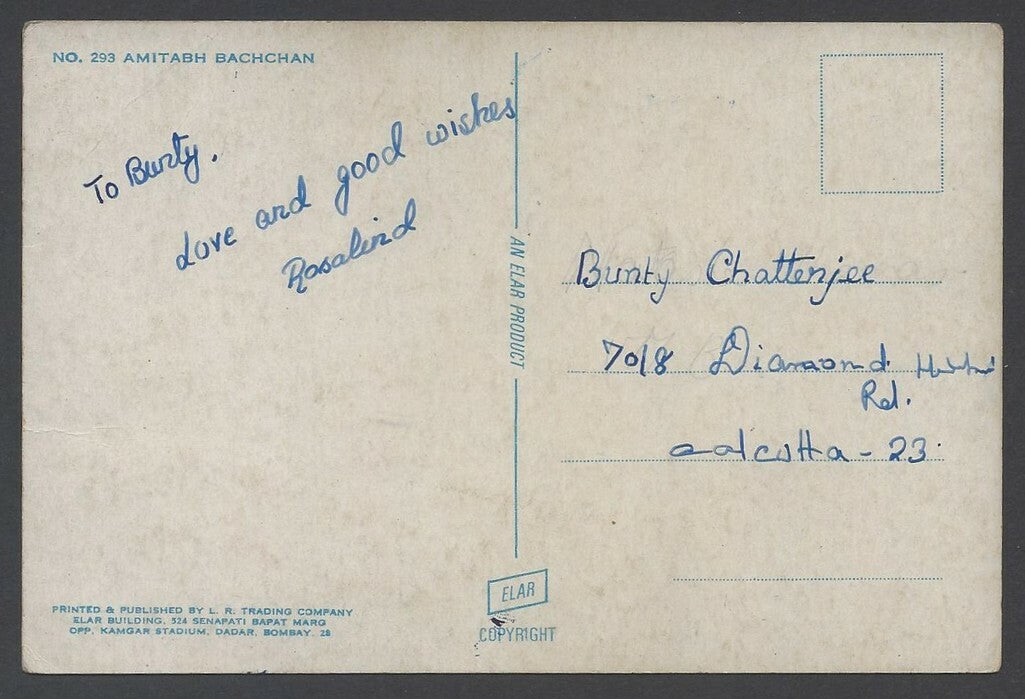 NO. 293 AMITABH BACHCHAN
To Bunty.
Love and good wishes
Rosalind
AN ELAR PRODUCT
Bunty Chatterjee
70/8 Diamond
Rd.
Calcutta - 23.
PRINTED & PUBLISHED BY L. R. TRADING COMPANY
ELAR BUILDING, 524 SENAPATI BAPAT MARG
OPP. KAMGAR STADIUM, DADAR, BOMBAY. 28
ELAR
COPYRIGHT